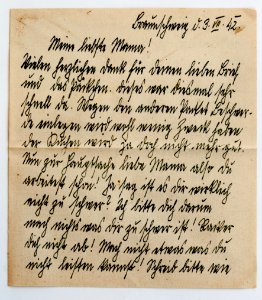 Braunschweig d. 3. VII. 42.
Meine liebste Mama!
Vielen herzlichen Dank für deinen lieben Brief
und das Päckchen. dieses war diesmal sehr
schnell da. Wegen den anderen Paket Beschwer-
de einlegen wird wohl wenig Zweck haben
der Kuchen wird ja doch nicht mehr gut.
Nun zur Hauptsache liebe Mama also du
arbeitest schon. Ja sag ist es dir wirklich
nicht zu schwer? Ich bitte dich darum
mach nichts was dir zu schwer ist! Racker
dich nicht ab! Mach nicht etwas was du
nicht leisten kannst! Schreib bitte wie